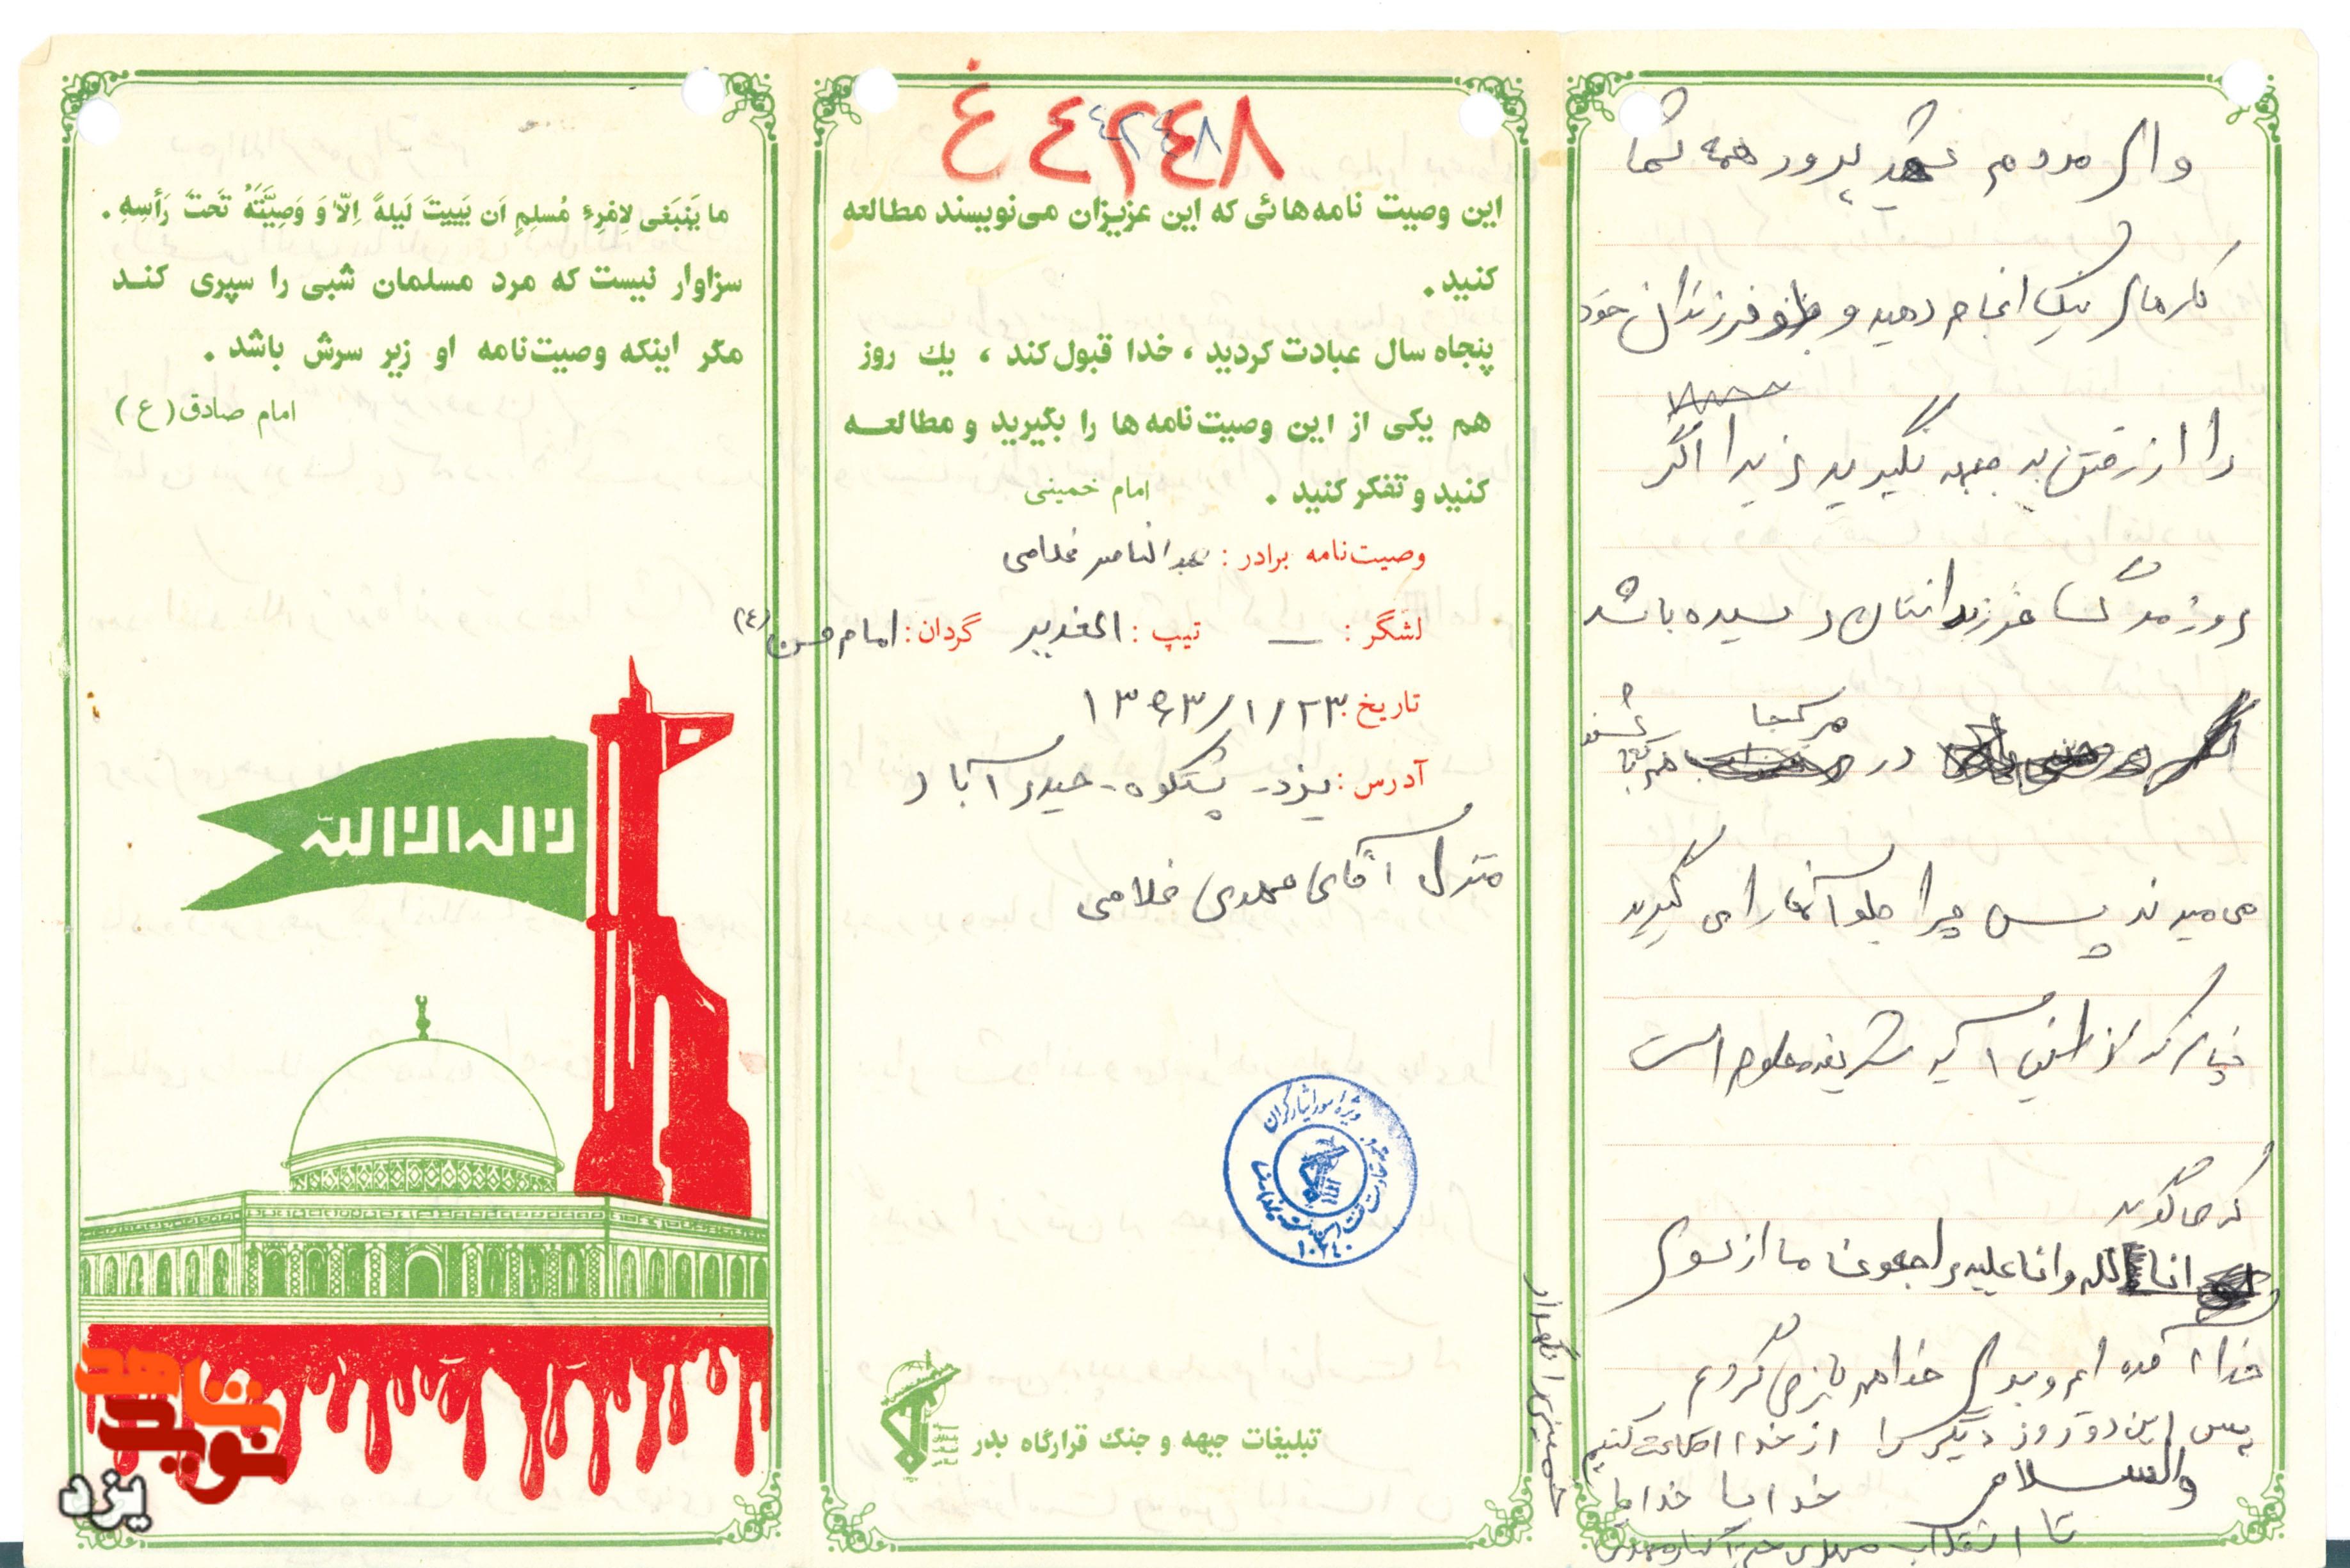 ما یَنبَغی لِامْرِءٍ مُسلِمٍ اَن یَبیتَ لَیلةً اِلّا وَ وَصِیَّتَهُ تَحتَ رَأسِهِ .
سزاوار نیست که مرد مسلمان شبی را سپری کند
مگر اینکه وصیت‌نامه او زیر سرش باشد .
امام صادق (ع)
لا اله الا الله
نوید شاهد
یزد
غ ٤٢٤٨
٤٢٤٨
این وصیت نامه‌هائی که این عزیزان می‌نویسند مطالعه
کنید .
پنجاه سال عبادت کردید ، خدا قبول کند ، یك روز
هم یکی از این وصیت‌نامه ها را بگیرید و مطالعه
کنید و تفکر کنید .
امام خمینی
وصیت‌نامه برادر : عبدالناصر غلامی
لشگر : — تیپ : الغدیر گردان : امام حسن (ع)
تاریخ : ۱۳۶۳/۱/۲۳
آدرس : یزد - پشتکوه - حیدرآباد
منزل آقای مهدی غلامی
ویژه امور ایثارگران
۱۰۲۴۰
تبلیغات جبهه و جنگ قرارگاه بدر
وای مردم شهید پرور همه شما
کارهای نیک انجام دهید و جلو فرزندان خود
را از رفتن به جبهه نگیرید زیرا اگر
روز مرگ فرزندانتان رسیده باشد
در هر کجا
می میرند پس چرا جلو آنها را می گیرید
چنان که از این آیه شریفه معلوم است
که می گوید
انا لله و انا علیه راجعون ما از سوی
خدا آمده ایم و بسوی خدا هم باز می گردیم
پس این دو روز دیگر را از خدا اطاعت کنیم
والسلام
خدایا خدایا
تا انقلاب مهدی
خمینی را نگهدار